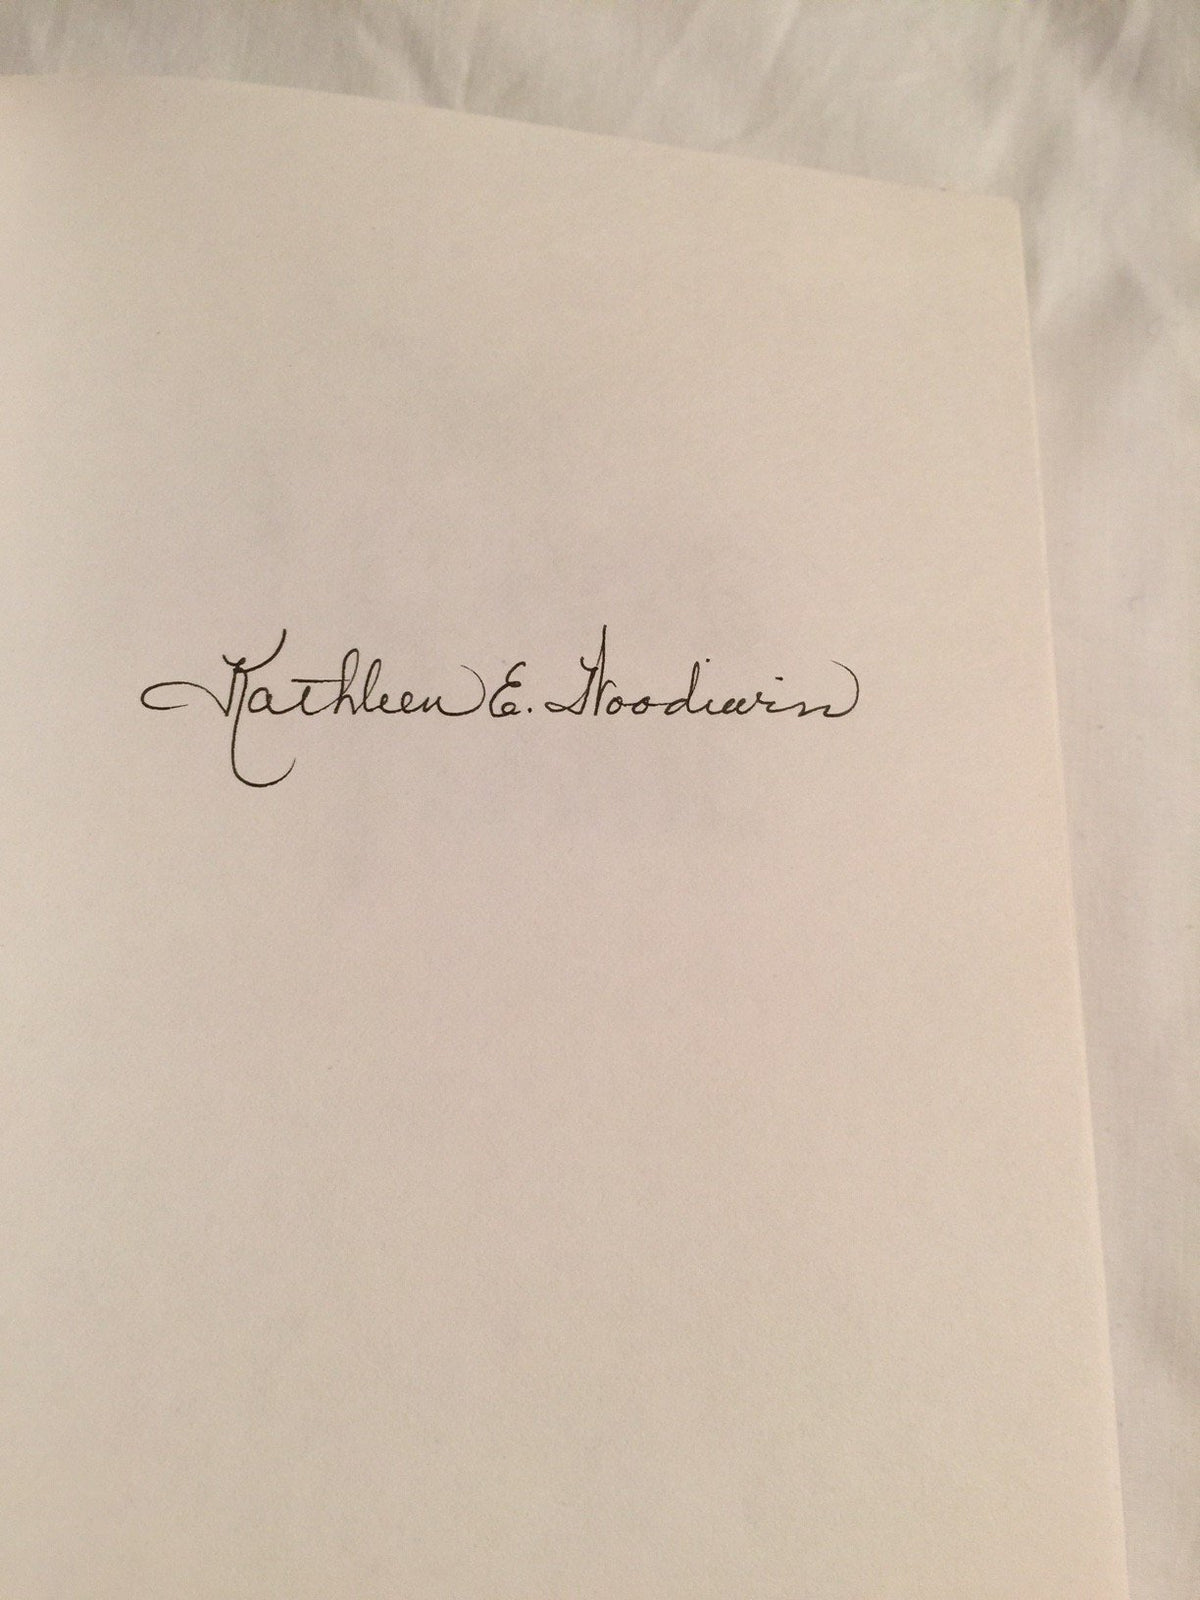 Kathleen E. Woodiwiss